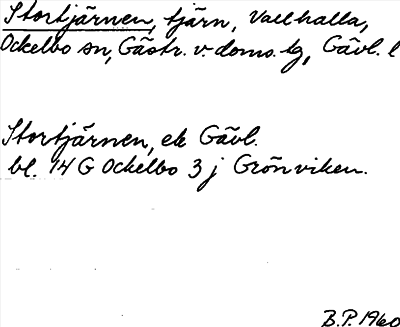 Stortjärnen, tjärn, Vallhalla,
Ockelbo sn, Gästr. v. doms. tg, Gävl. l
Stortjärnen, ek Gävl.
bl. 14 G Ockelbo 3 j Grönviken.
B.P. 1960